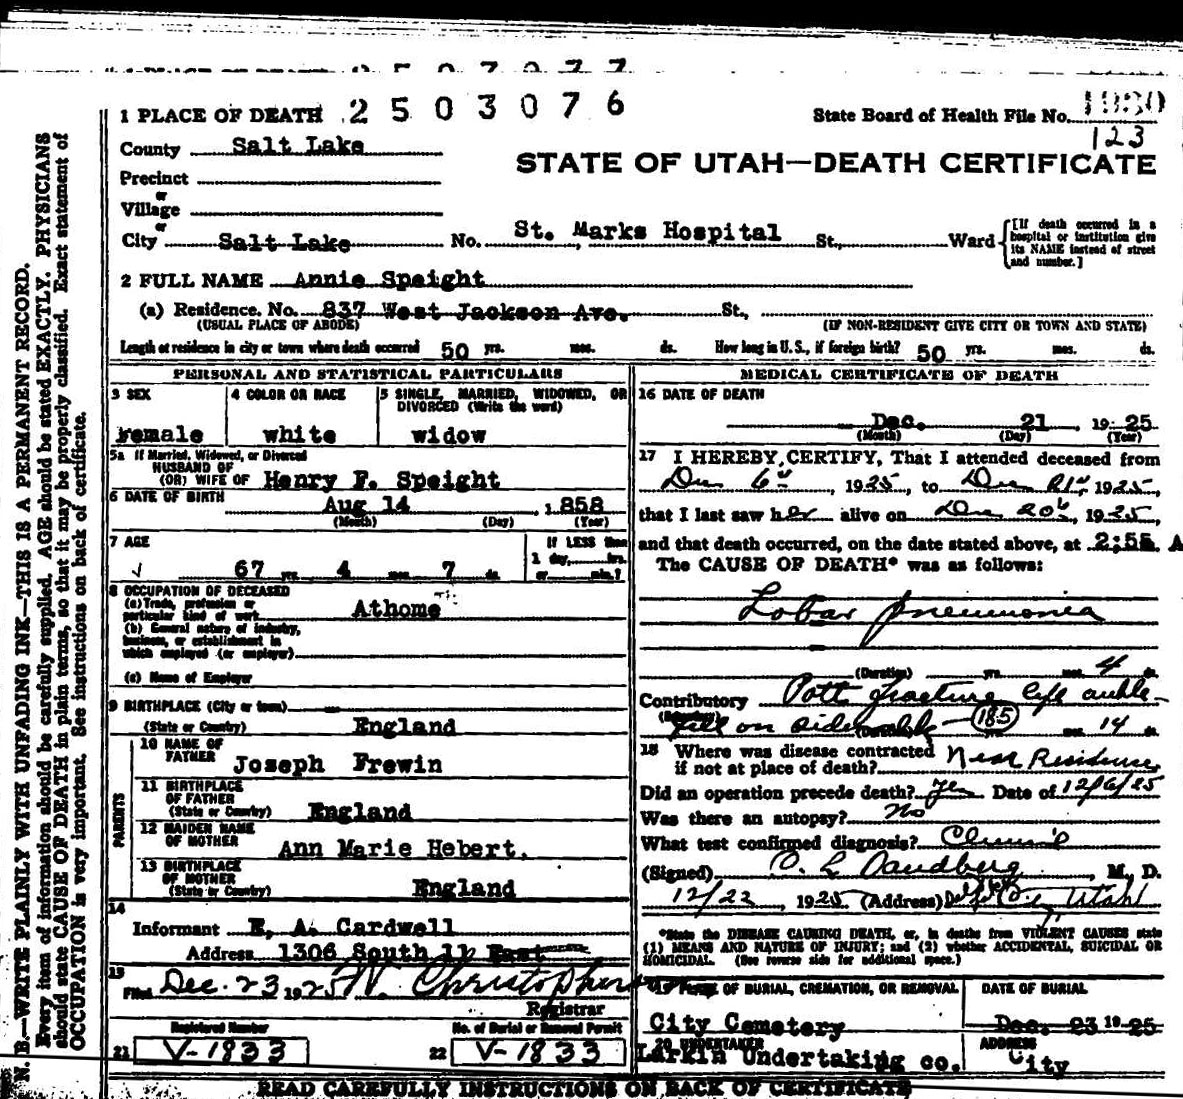 1 PLACE OF DEATH 2503076
State Board of Health File No. 1930
123
County Salt Lake
STATE OF UTAH—DEATH CERTIFICATE
Precinct
or
Village
or
City Salt Lake No. St. Marks Hospital St., Ward
[If death occurred in a hospital or institution give its NAME instead of street and number.]
2 FULL NAME Annie Speight
(a) Residence. No. 837 West Jackson Ave. St.,
(USUAL PLACE OF ABODE) (IF NON-RESIDENT GIVE CITY OR TOWN AND STATE)
Length of residence in city or town where death occurred 50 yrs. mos. ds. How long in U.S., if foreign birth? 50 yrs. mos. ds.
PERSONAL AND STATISTICAL PARTICULARS
3 SEX
female
4 COLOR OR RACE
white
5 SINGLE, MARRIED, WIDOWED, OR
DIVORCED (Write the word)
widow
5a If Married, Widowed, or Divorced
HUSBAND OF
(OR) WIFE OF Henry F. Speight
6 DATE OF BIRTH
Aug 14 , 1858
(Month) (Day) (Year)
7 AGE
67 yrs. 4 mos. 7 ds.
If LESS than
1 day, hrs.
or min.?
8 OCCUPATION OF DECEASED
(a) Trade, profession or
particular kind of work Athome
(b) General nature of industry,
business, or establishment in
which employed (or employer)
(c) Name of Employer
9 BIRTHPLACE (City or town)
(State or Country) England
PARENTS
10 NAME OF
FATHER Joseph Frewin
11 BIRTHPLACE
OF FATHER
(State or Country) England
12 MAIDEN NAME
OF MOTHER Ann Marie Hebert.
13 BIRTHPLACE
OF MOTHER
(State or Country) England
14
Informant E. A. Cardwell
Address 1306 South 11 East
15
Filed Dec. 23 1925 W. Christopherson
Registrar
Registered Number
21 V-1833
No. of Burial or Removal Permit
22 V-1833
MEDICAL CERTIFICATE OF DEATH
16 DATE OF DEATH
Dec. 21 , 1925
(Month) (Day) (Year)
17 I HEREBY CERTIFY, That I attended deceased from
Dec 6th, 1925, to Dec 21st, 1925,
that I last saw her alive on Dec 20th, 1925,
and that death occurred, on the date stated above, at 2:55 A
The CAUSE OF DEATH* was as follows:
Lobar pneumonia
(Duration) yrs. mos. 4 ds.
Contributory Pott fracture left ankle—
fall on sidewalk— (185) 14
18 Where was disease contracted
if not at place of death? Near Residence
Did an operation precede death? Yes Date of 12/6/25
Was there an autopsy? No
What test confirmed diagnosis? Clinical
(Signed) O. L. Sandberg, M. D.
12/22, 1925 (Address) City Utah
*State the DISEASE CAUSING DEATH, or, in deaths from VIOLENT CAUSES state
(1) MEANS AND NATURE OF INJURY; and (2) whether ACCIDENTAL, SUICIDAL OR
HOMICIDAL. (See reverse side for additional space.)
19 PLACE OF BURIAL, CREMATION, OR REMOVAL
City Cemetery
DATE OF BURIAL
Dec. 23 1925
20 UNDERTAKER
Larkin Undertaking co.
ADDRESS
City
READ CAREFULLY INSTRUCTIONS ON BACK OF CERTIFICATE
N. B.—WRITE PLAINLY WITH UNFADING INK—THIS IS A PERMANENT RECORD.
Every item of information should be carefully supplied. AGE should be stated EXACTLY. PHYSICIANS
should state CAUSE OF DEATH in plain terms, so that it may be properly classified. Exact statement of
OCCUPATION is very important. See instructions on back of certificate.